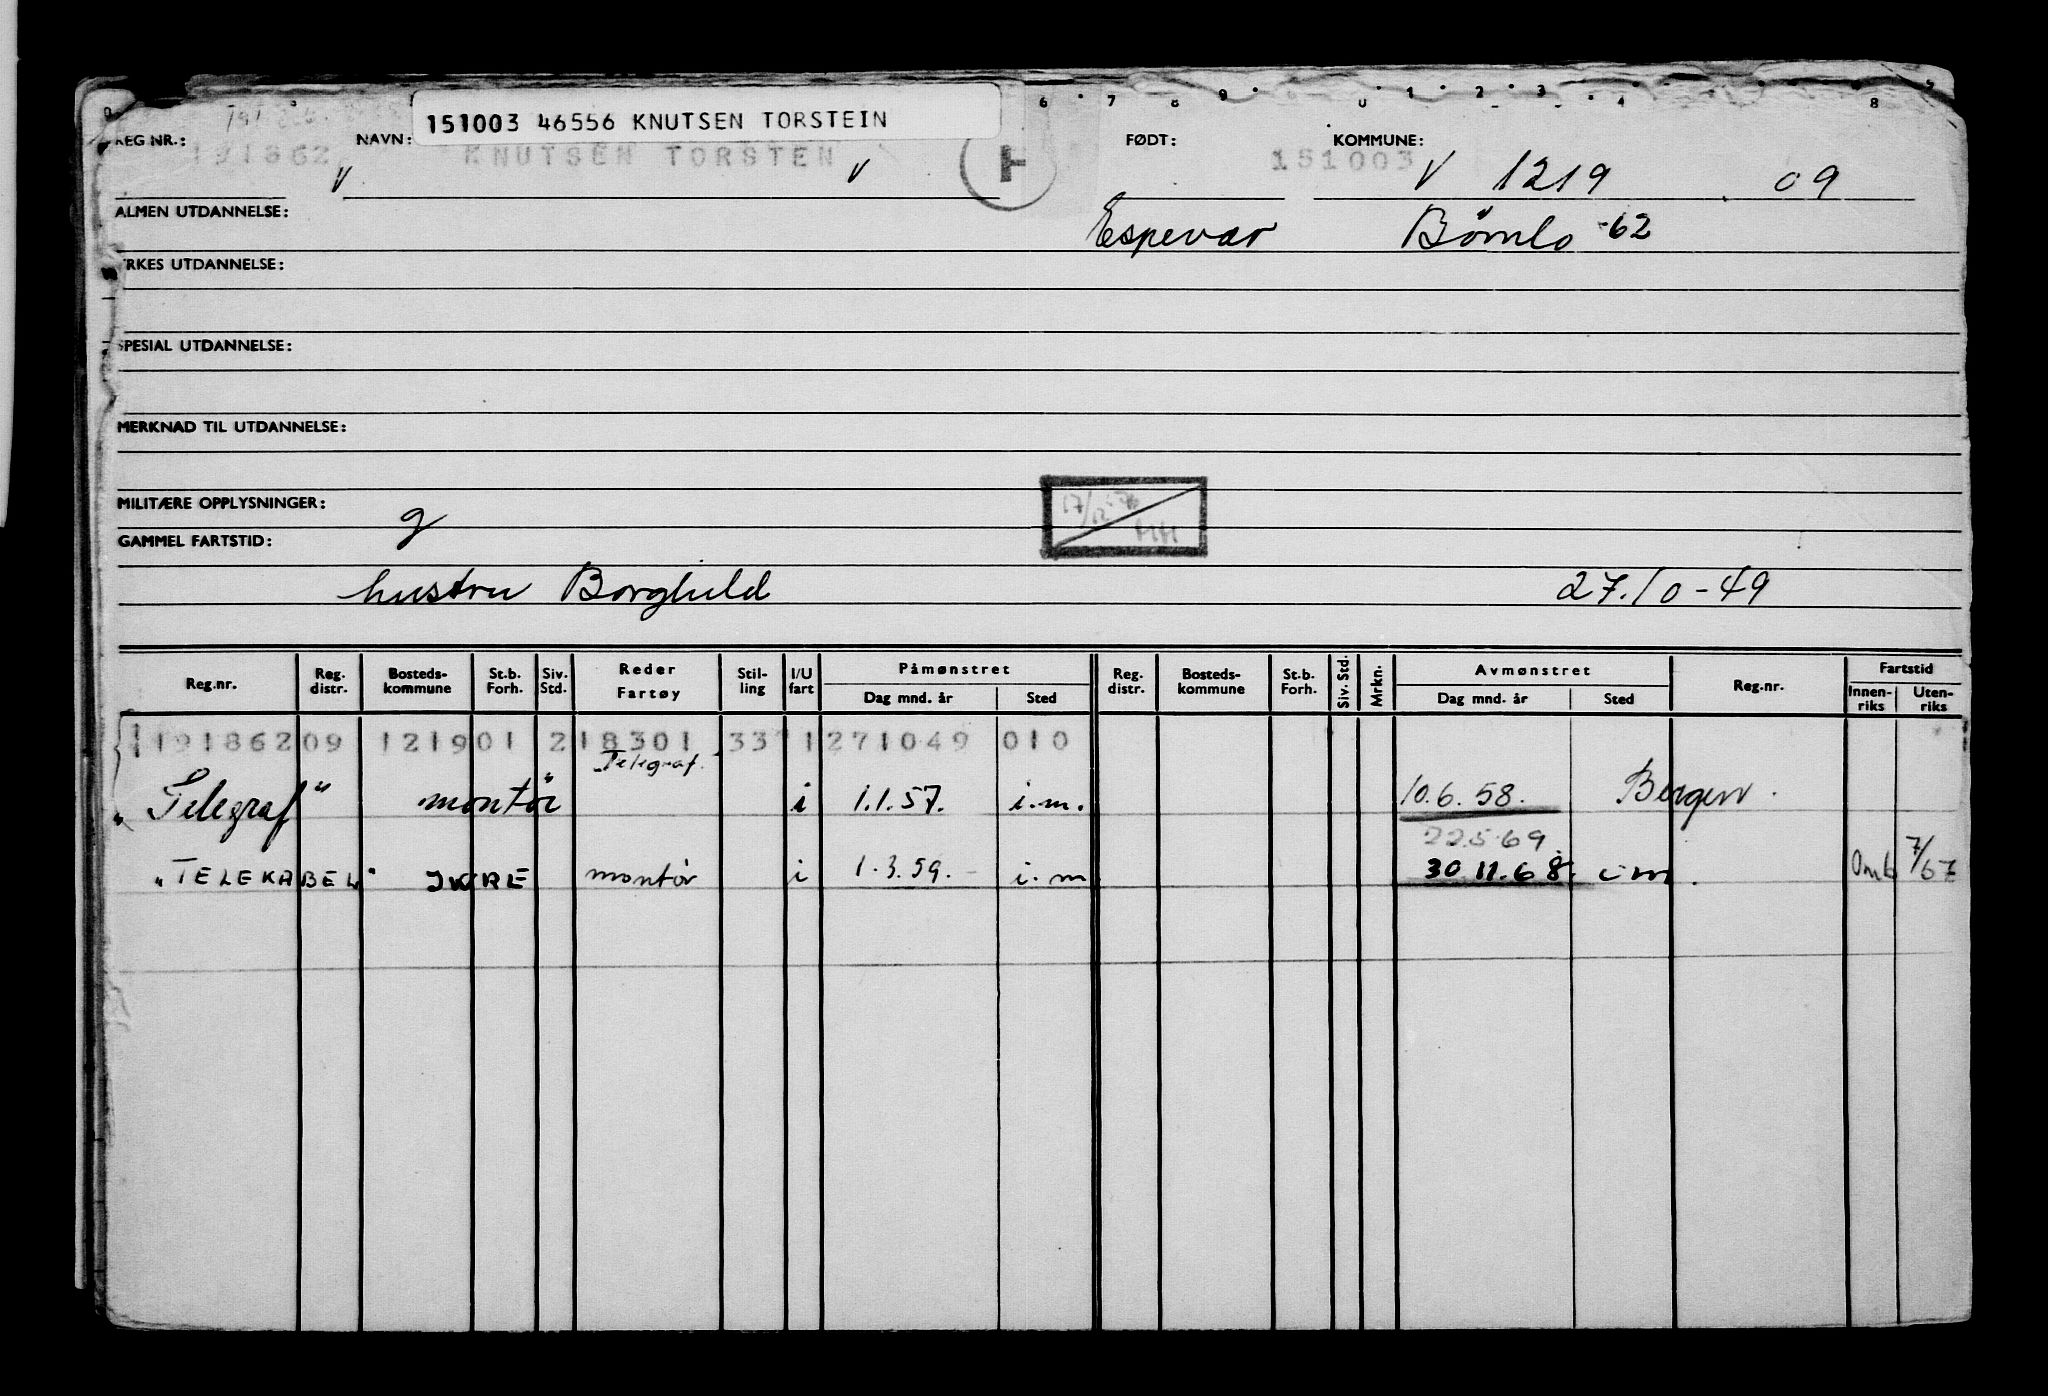 6 7 8 9 0 1 2 3 4 8
151003 46556 KNUTSEN TORSTEIN
REG NR.: NAVN: FØDT: KOMMUNE:
191862 KNUTSEN TORSTEN H 151003
V V V 1219 09
ALMEN UTDANNELSE: Espevær Bømlo -62
YRKES UTDANNELSE:
SPESIAL UTDANNELSE:
MERKNAD TIL UTDANNELSE:
MILITÆRE OPPLYSNINGER: g 17/12
GAMMEL FARTSTID:
hustru Borghild 27.10-49
Reg.nr. Reg. distr. Bosteds-kommune St.b. Forh. Siv. Std. Reder Fartøy Stil-ling I/U fart Påmønstret Dag mnd. år Sted Reg. distr. Bosteds-kommune St.b. Forh. Siv. Std. Mrkn. Avmønstret Dag mnd. år Sted Reg.nr. Fartstid Innen-riks Uten-riks
191862 09 1219 01 2 18301 33 1 271049 010
Telegraf.
"Telegraf" montør i 1.1.57. i.m. 10.6.58. Bergen.
22.5.69
"TELEKABEL" montør i 1.3.59. i.m 30.11.68. i m. Omb 7/67